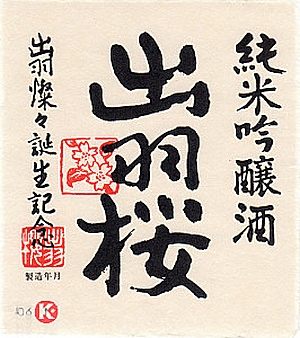 純米吟醸酒
出羽桜
出羽燦々誕生記念
製造年月
K